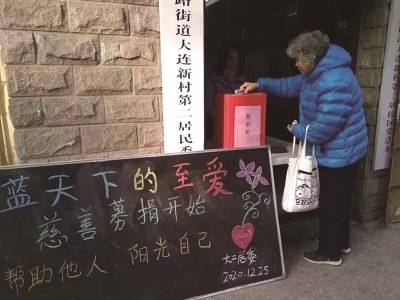 路街道大连新村第二居民委
蓝天下的至爱
慈善募捐开始
帮助他人 阳光自己
大二居委
2020.12.25